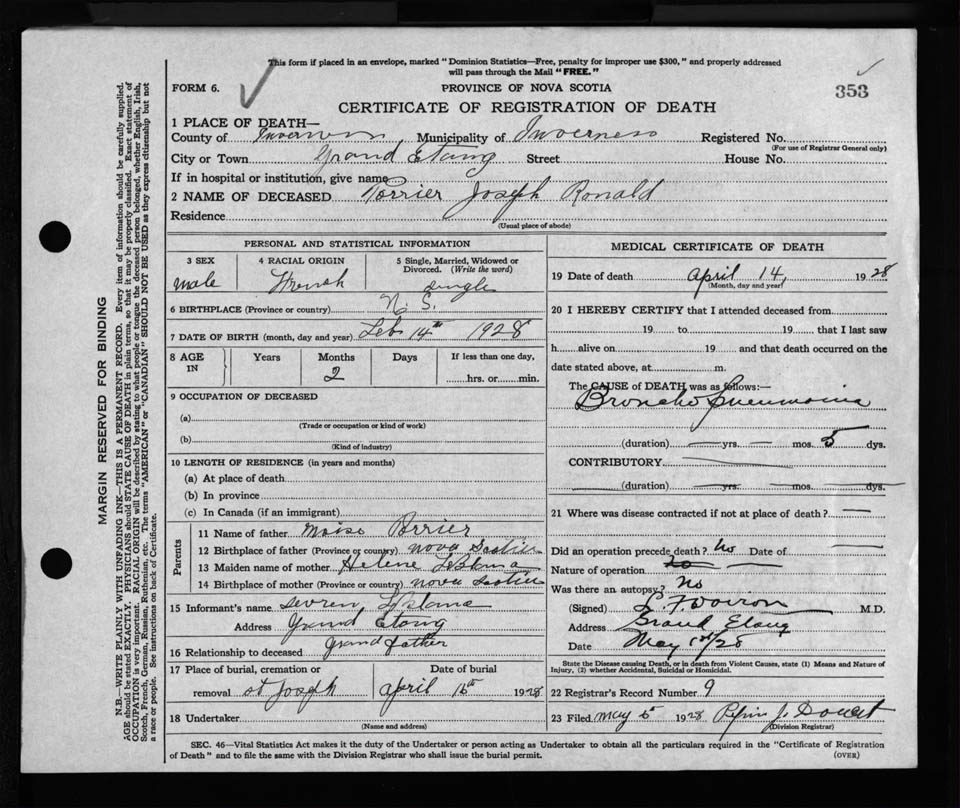 This form if placed in an envelope, marked "Dominion Statistics—Free, penalty for improper use $300," and properly addressed
will pass through the Mail "FREE."
FORM 6.
PROVINCE OF NOVA SCOTIA
353
CERTIFICATE OF REGISTRATION OF DEATH
1 PLACE OF DEATH—
County of Inverness Municipality of Inverness Registered No.
(For use of Registrar General only)
City or Town Grand Etang Street House No.
If in hospital or institution, give name
2 NAME OF DECEASED Joseph Ronald
Residence
(Usual place of abode)
PERSONAL AND STATISTICAL INFORMATION
3 SEX 4 RACIAL ORIGIN 5 Single, Married, Widowed or Divorced. (Write the word)
male French single
6 BIRTHPLACE (Province or country) N. S.
7 DATE OF BIRTH (month, day and year) Feb 14th 1928
8 AGE IN Years Months Days If less than one day,
2 hrs. or min.
9 OCCUPATION OF DECEASED
(a)
(Trade or occupation or kind of work)
(b)
(Kind of industry)
10 LENGTH OF RESIDENCE (in years and months)
(a) At place of death
(b) In province
(c) In Canada (if an immigrant)
Parents
11 Name of father
12 Birthplace of father (Province or country) Nova Scotia
13 Maiden name of mother Helene
14 Birthplace of mother (Province or country) Nova Scotia
15 Informant's name
Address Grand Etang
16 Relationship to deceased Grand father
17 Place of burial, cremation or Date of burial
removal St Joseph April 16th 1928
18 Undertaker
(Name and address)
MEDICAL CERTIFICATE OF DEATH
19 Date of death April 14, 1928
(Month, day and year)
20 I HEREBY CERTIFY that I attended deceased from
19 to 19 that I last saw
h alive on 19 and that death occurred on the
date stated above, at m.
The CAUSE of DEATH was as follows:—
Broncho pneumonia
(duration) — yrs. — mos. 5 dys.
CONTRIBUTORY
(duration) yrs. mos. dys.
21 Where was disease contracted if not at place of death? —
Did an operation precede death? No Date of —
Nature of operation —
Was there an autopsy? No
(Signed) M.D.
Address Grand Etang
Date May 1st/28
State the Disease causing Death, or in death from Violent Causes, state (1) Means and Nature of
Injury, (2) whether Accidental, Suicidal or Homicidal.
22 Registrar's Record Number 9
23 Filed May 5 1928
(Division Registrar)
SEC. 46—Vital Statistics Act makes it the duty of the Undertaker or person acting as Undertaker to obtain all the particulars required in the "Certificate of Registration
of Death" and to file the same with the Division Registrar who shall issue the burial permit. (OVER)
MARGIN RESERVED FOR BINDING
N.B.—WRITE PLAINLY WITH UNFADING INK—THIS IS A PERMANENT RECORD. Every item of information should be carefully supplied.
AGE should be stated EXACTLY. PHYSICIANS should STATE CAUSE OF DEATH in plain terms, so that it may be properly classified. Exact statement of
OCCUPATION is very important. RACIAL ORIGIN will be described by stating to what people or tongue the deceased person belonged, whether English, Irish,
Scotch, French, German, Russian, Ruthenian, etc. The terms "AMERICAN" or "CANADIAN" SHOULD NOT BE USED as they express citizenship but not
a race or people. See instructions on back of Certificate.